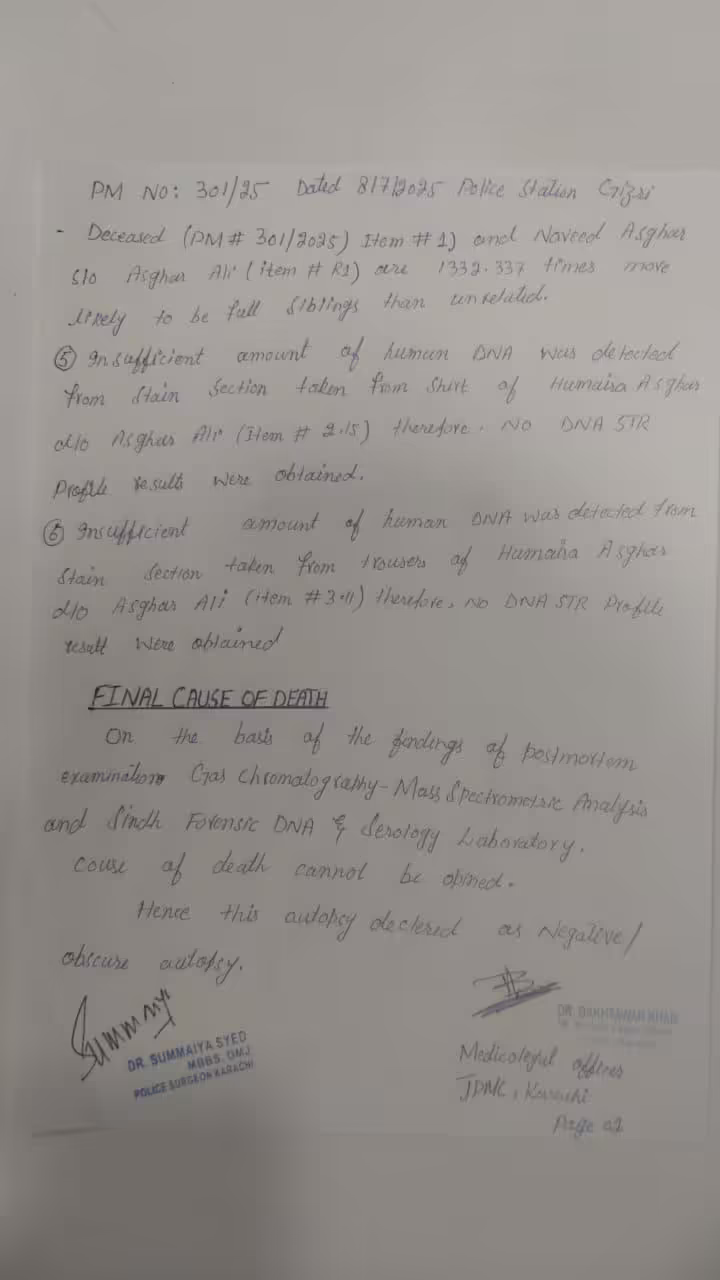 PM NO: 301/25 Dated 8/7/2025 Police Station Gizri
- Deceased (PM# 301/2025) Item #1) and Naveed Asghar
s/o Asghar Ali (item # R1) are 1332.337 times more
likely to be full siblings than unrelated.
⑤ Insufficient amount of human DNA was detected
from stain section taken from shirt of Humaira Asghar
d/o Asghar Ali (Item # 2.15) therefore, NO DNA STR
Profile results were obtained.
⑥ Insufficient amount of human DNA was detected from
stain section taken from trousers of Humaira Asghar
d/o Asghar Ali (item #3.11) therefore, NO DNA STR Profile
result were obtained
FINAL CAUSE OF DEATH
On the basis of the findings of postmortem
examination Gas Chromatography-Mass Spectrometric Analysis
and Sindh Forensic DNA & Serology Laboratory.
couse of death cannot be opined.
Hence this autopsy declered as Negative/
obscure autopsy.
Summaya
DR. SUMMAIYA SYED
MBBS, DMJ
POLICE SURGEON KARACHI
DR. BAKHTAWAR KHAN
Medicolegal officer
JPMC, Karachi
Page 02